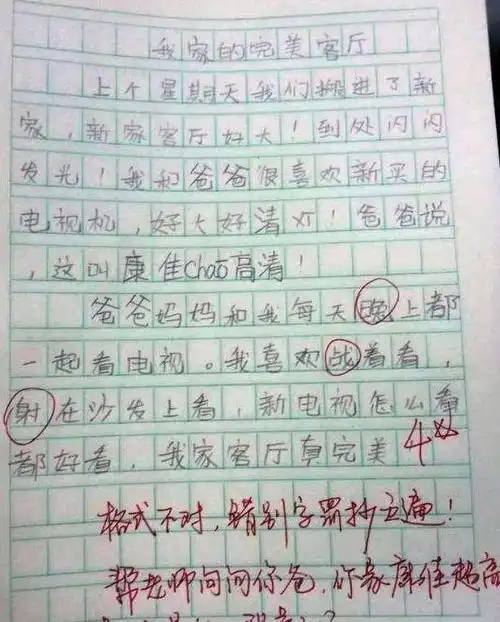 我家的完美客厅
上个星期天我们搬进了新
家,新家客厅好大!到处闪闪
发光!我和爸爸很喜欢新买的
电视机,好大好清大!爸爸说
,这叫康佳Chao高清!
爸爸妈妈和我每天晚上都
一起看电视。我喜欢战着看,
射在沙发上看,新电视怎么看
都好看,我家客厅真完美
格式不对,错别字罚抄五遍!
帮老师问问你爸,你家康佳超高